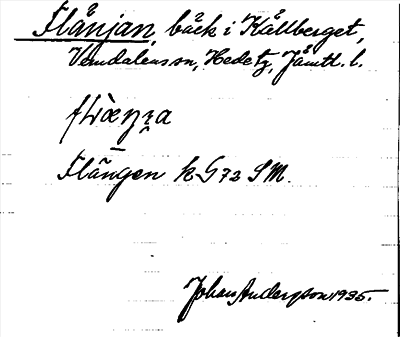 Flånjan, bäck i Källberget,
Vemdalens sn, Hede tg, Jämtl. l.
Flången k G72 SM.
Johan Anderzon 1935.